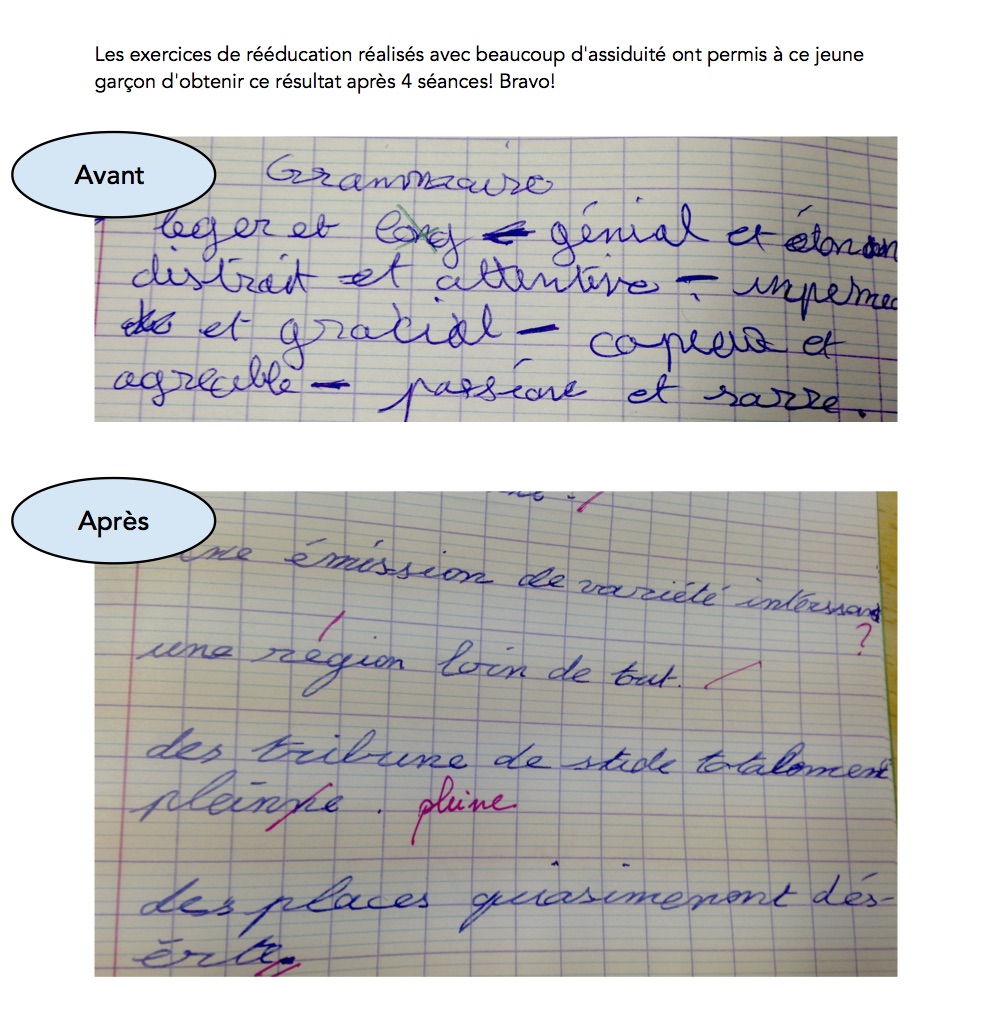 Les exercices de rééducation réalisés avec beaucoup d'assiduité ont permis à ce jeune
garçon d'obtenir ce résultat après 4 séances! Bravo!
Avant
Grammaire
leger et long - génial et
distrait et attentive -
et gracial - copieux et
agreable - passione et
Après
une émission de variété
une région loin de tout.
des tribune de stade totalement
pleinne. pleine
des places quasimenont dés-
érte.